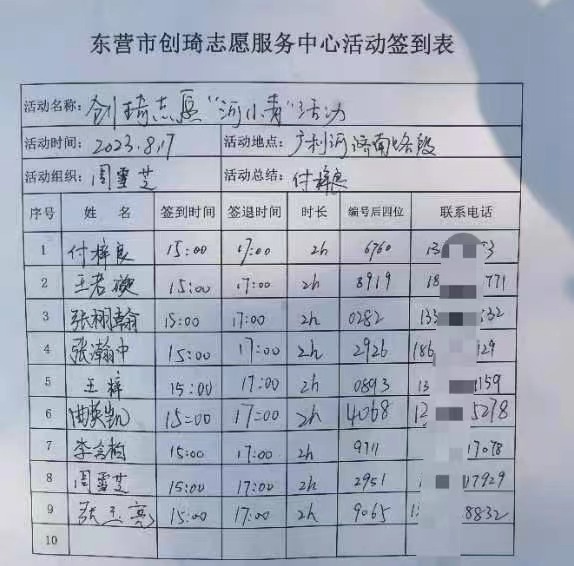 东营市创琦志愿服务中心活动签到表
活动名称: 创琦志愿“河小青”活动
活动时间: 2023.8.17 活动地点: 广利河济南路段
活动组织: 周雪芝 活动总结: 付梓良
序号 姓 名 签到时间 签退时间 时长 编号后四位 联系电话
1 付梓良 15:00 17:00 2h 6760
2 王君 15:00 17:00 2h 8919 18 771
3 张栩瀚 15:00 17:00 2h 0282 133 532
4 张瀚中 15:00 17:00 2h 2926 186 129
5 王梓 15:00 17:00 2h 0893 13 159
6 曲英凯 15:00 17:00 2h 4068 5278
7 李 15:00 17:00 2h 9711 17078
8 周雪芝 15:00 17:00 2h 2951 07929
9 张玉亮 15:00 17:00 2h 9065 8832
10